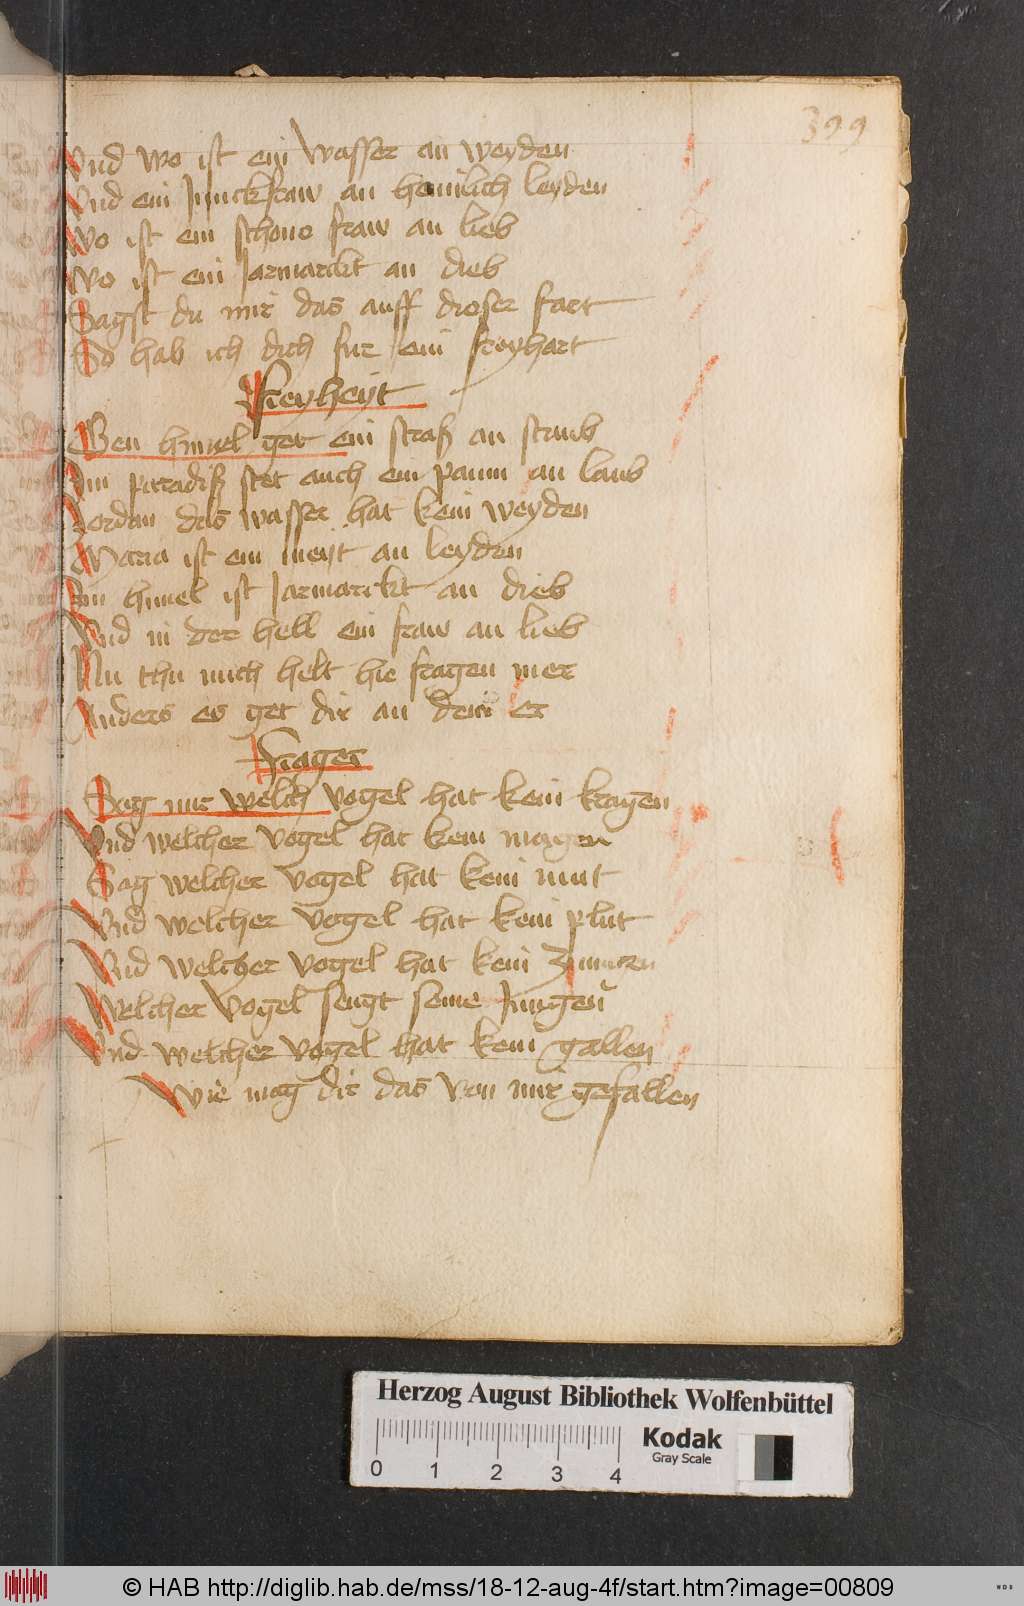 399
Vnd wo ist ein wasser an weyden
Vnd ein Junckfraw an heimlich leyden
Wo ist ein schone fraw an lieb
Wo ist ein Jarmarckt an dieb
Sagst du mir das auff dieser fart
So hab ich dich fur ein freyhart
Freyheyt
Gen himel get ein straß an straub
Im paradiß stet auch ein paum an laub
Jordan das wasser hat kein weyden
Maria ist ein meyt an leyden
Im himel ist Jarmarckt an dieb
Vnd in der hell ein fraw an lieb
Nu thu mich helt hie fragen mer
Anders es get dir an dein er
Frager
Sag mir welch vogel hat kein kragen
Vnd welcher vogel hat kein magen
Sag welcher vogel hat kein mut
Vnd welcher vogel hat kein plut
Vnd welcher vogel hat kein zungen
Welcher vogel sengt seine Jungen
Vnd welcher vogel hat kein gallen
Wie mag dir das von mir gefallen
Herzog August Bibliothek Wolfenbüttel
Kodak
Gray Scale
0 1 2 3 4
© HAB http://diglib.hab.de/mss/18-12-aug-4f/start.htm?image=00809